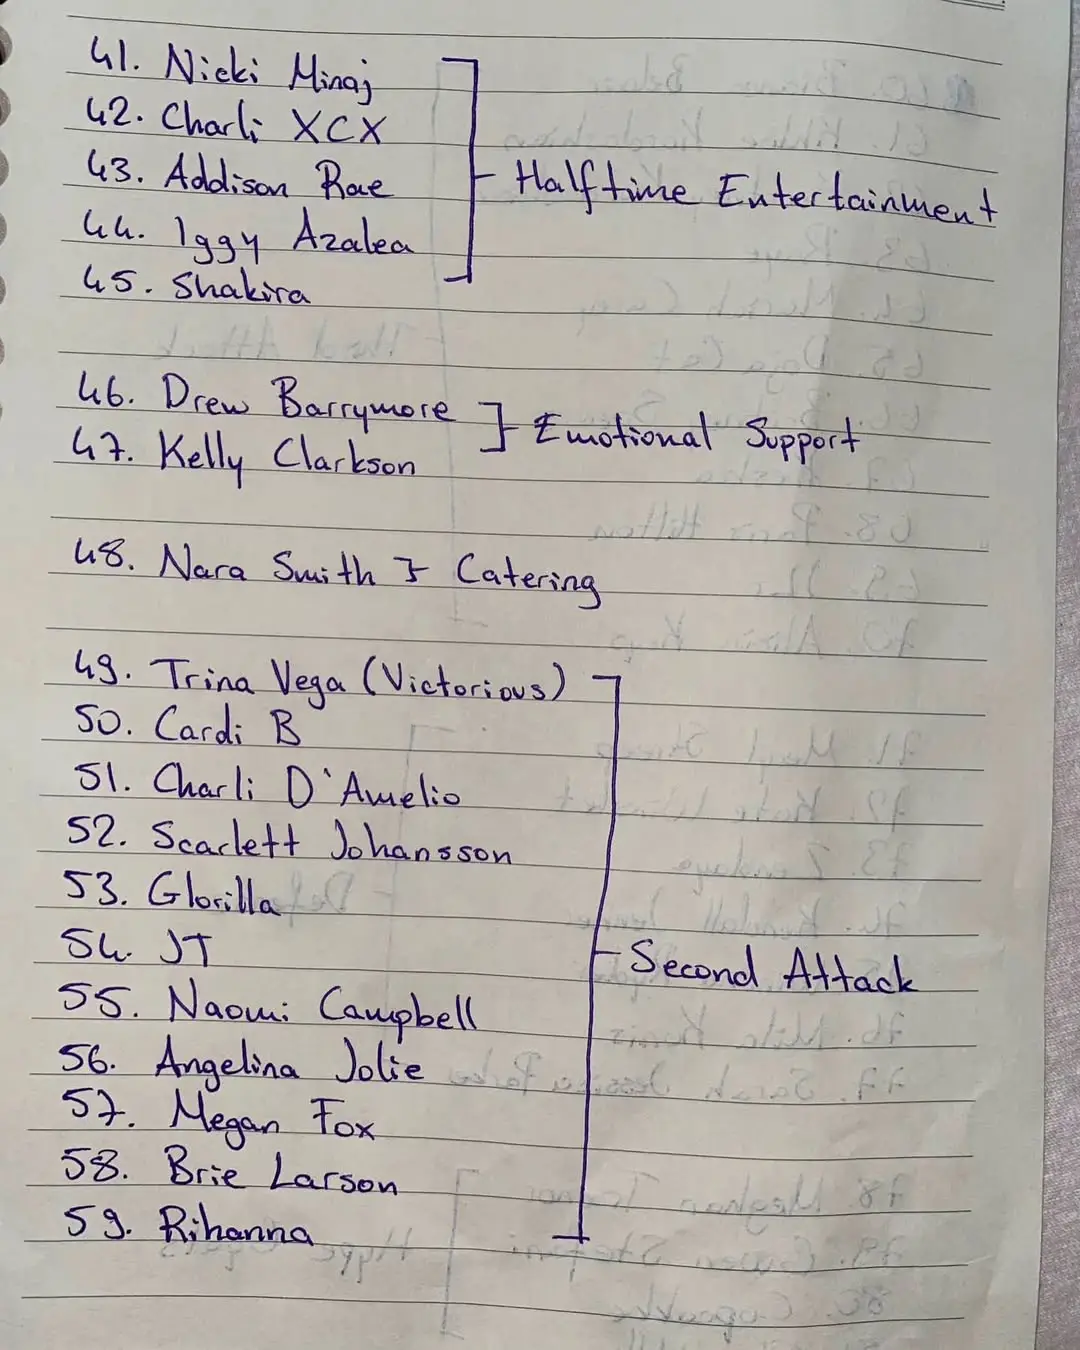 41. Nicki Minaj
42. Charli XCX
43. Addison Rae
Halftime Entertainment
44. Iggy Azalea
45. Shakira
46. Drew Barrymore
Emotional Support
47. Kelly Clarkson
48. Nara Smith Catering
49. Trina Vega (Victorious)
50. Cardi B
51. Charli D'Amelio
52. Scarlett Johansson
53. Glorilla
54. JT
Second Attack
55. Naomi Campbell
56. Angelina Jolie
57. Megan Fox
58. Brie Larson
59. Rihanna